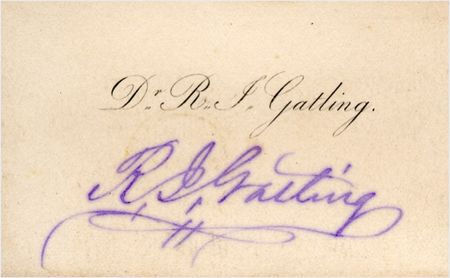 Dr. R. J. Gatling.
R. J. Gatling